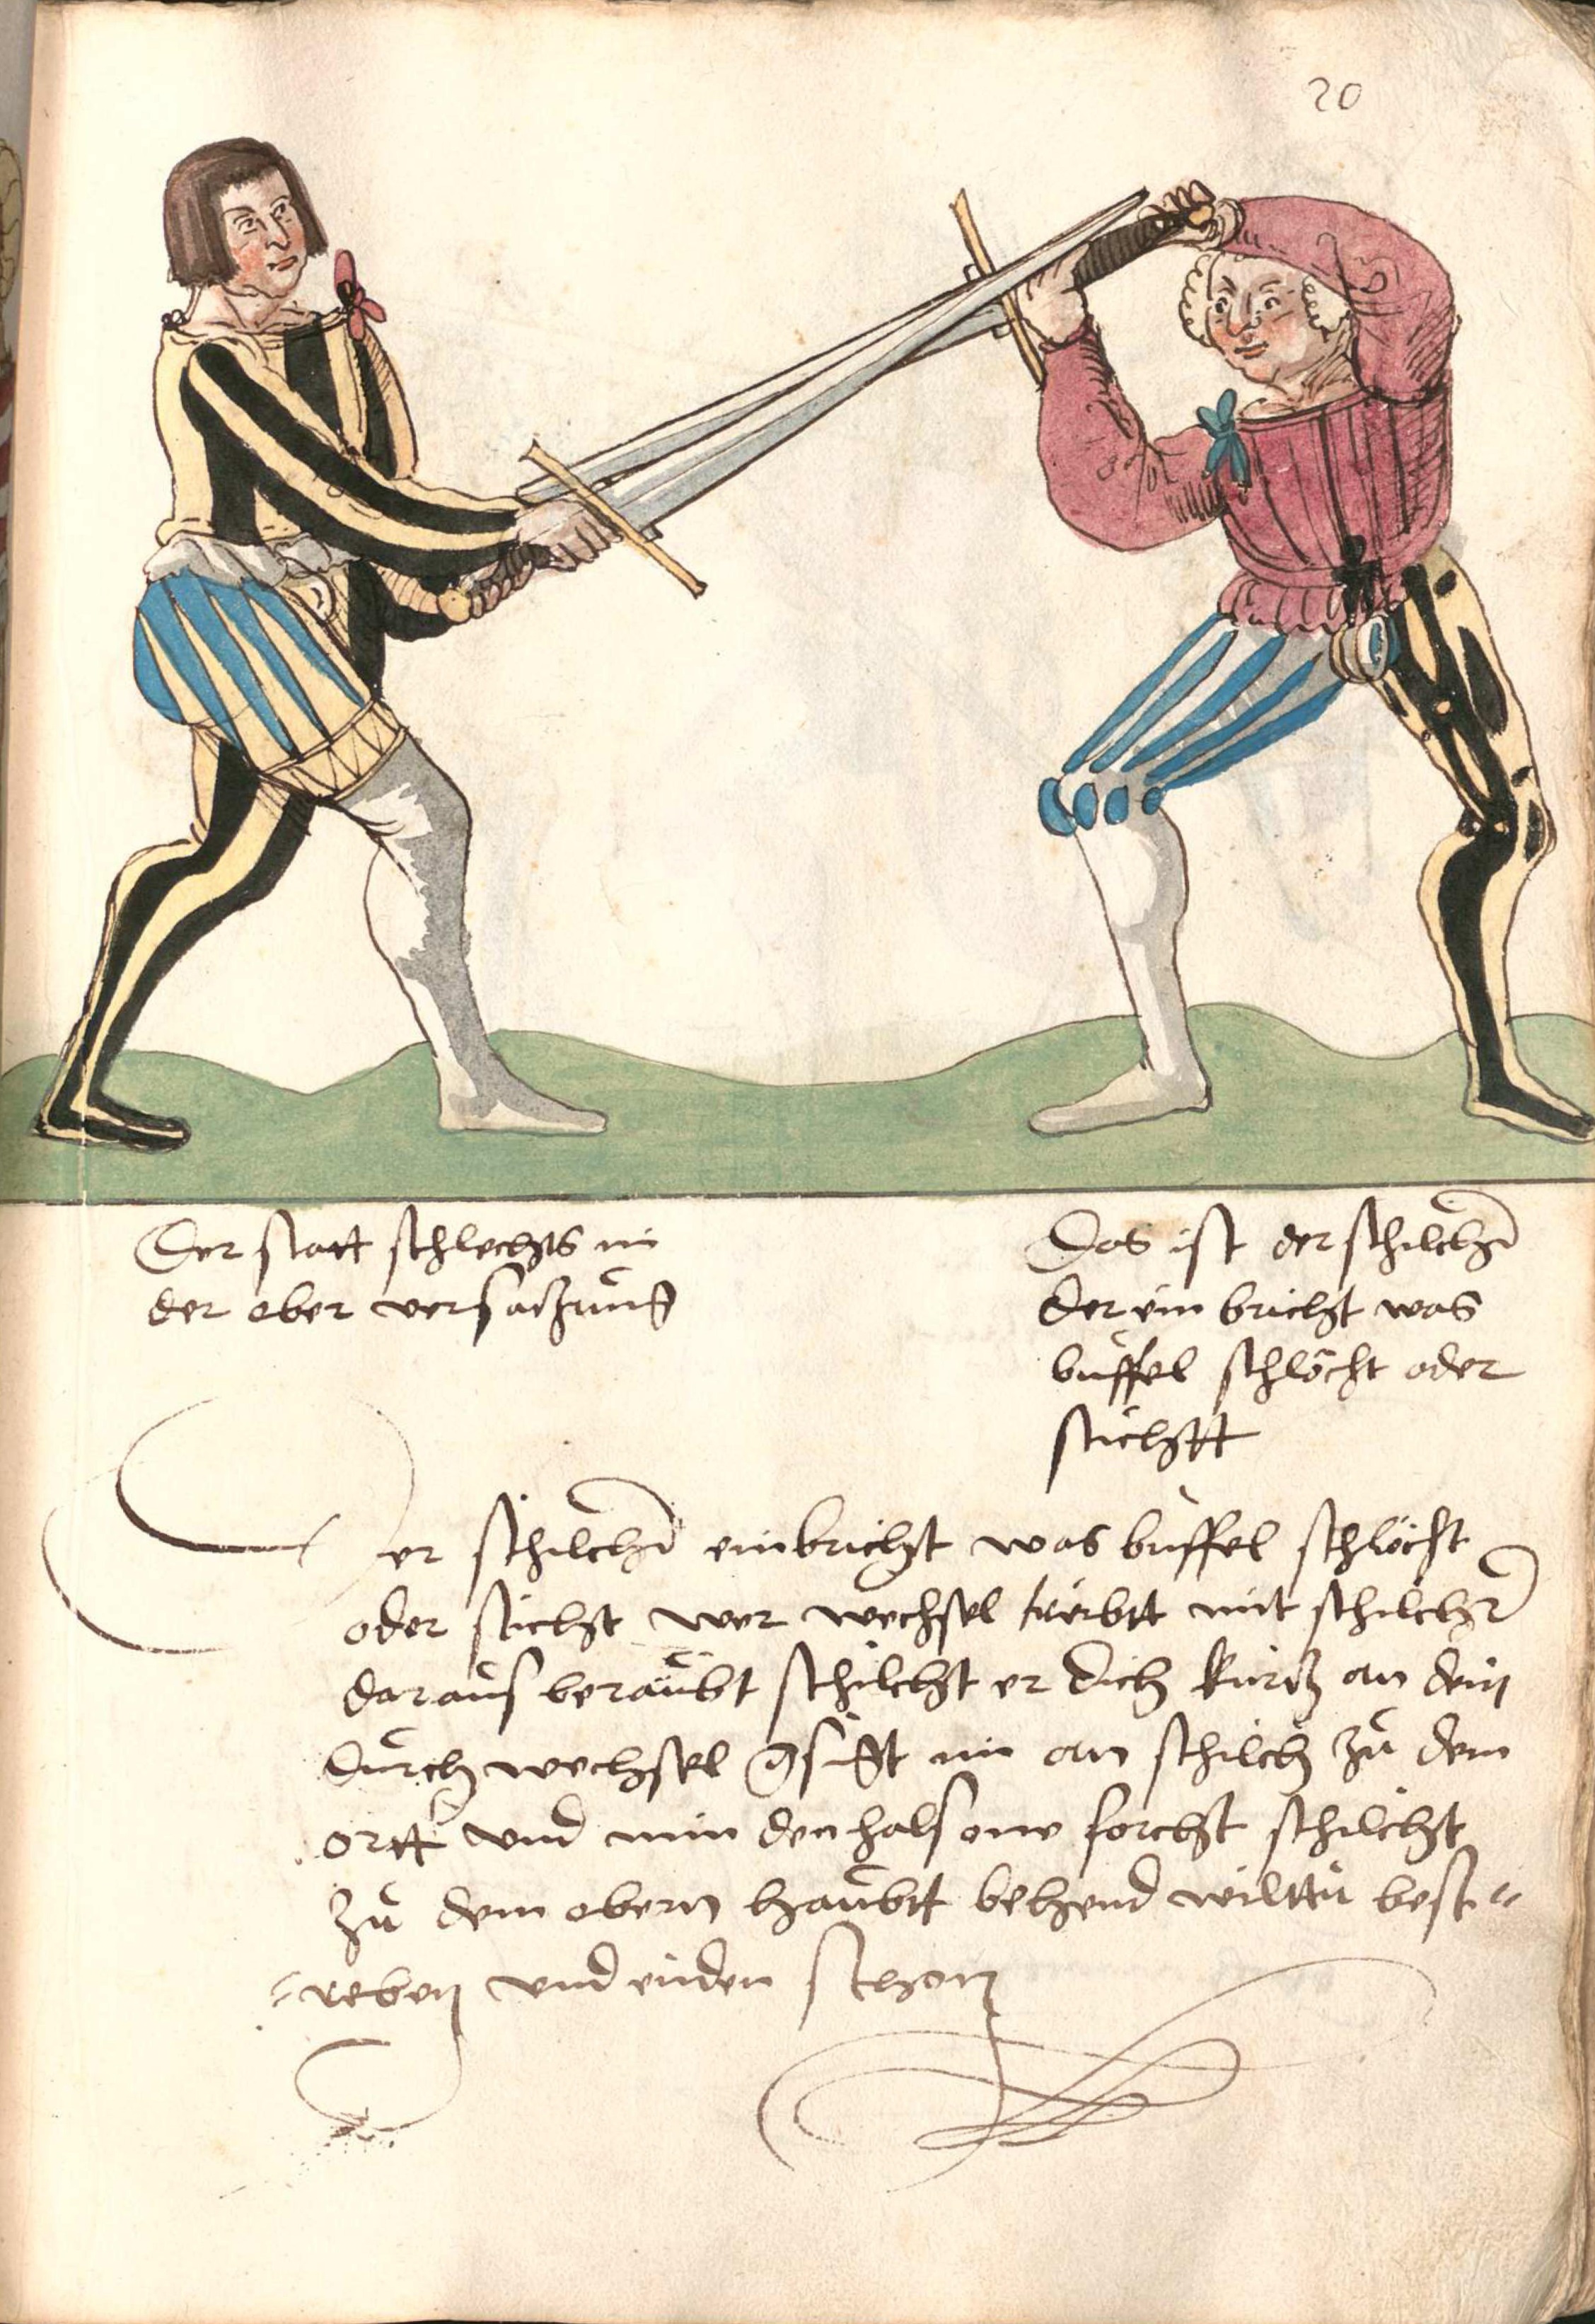 20
Der statt schlechts in
der ober versatzung
Das ist der schilcher
der ein bricht was
buffel schlöcht oder
stichtt
er schilcher einbricht was buffel schlöcht
oder sticht wer wechsel trėibtt mit schilcher
daraus beraubt schilcht er dich kurtz an dein
durch wechsel gsigt im an schilch zu dem
ortt und nim den hals one forcht schilcht
zu dem obern haubtt behend wilttu best
reben und enden schon